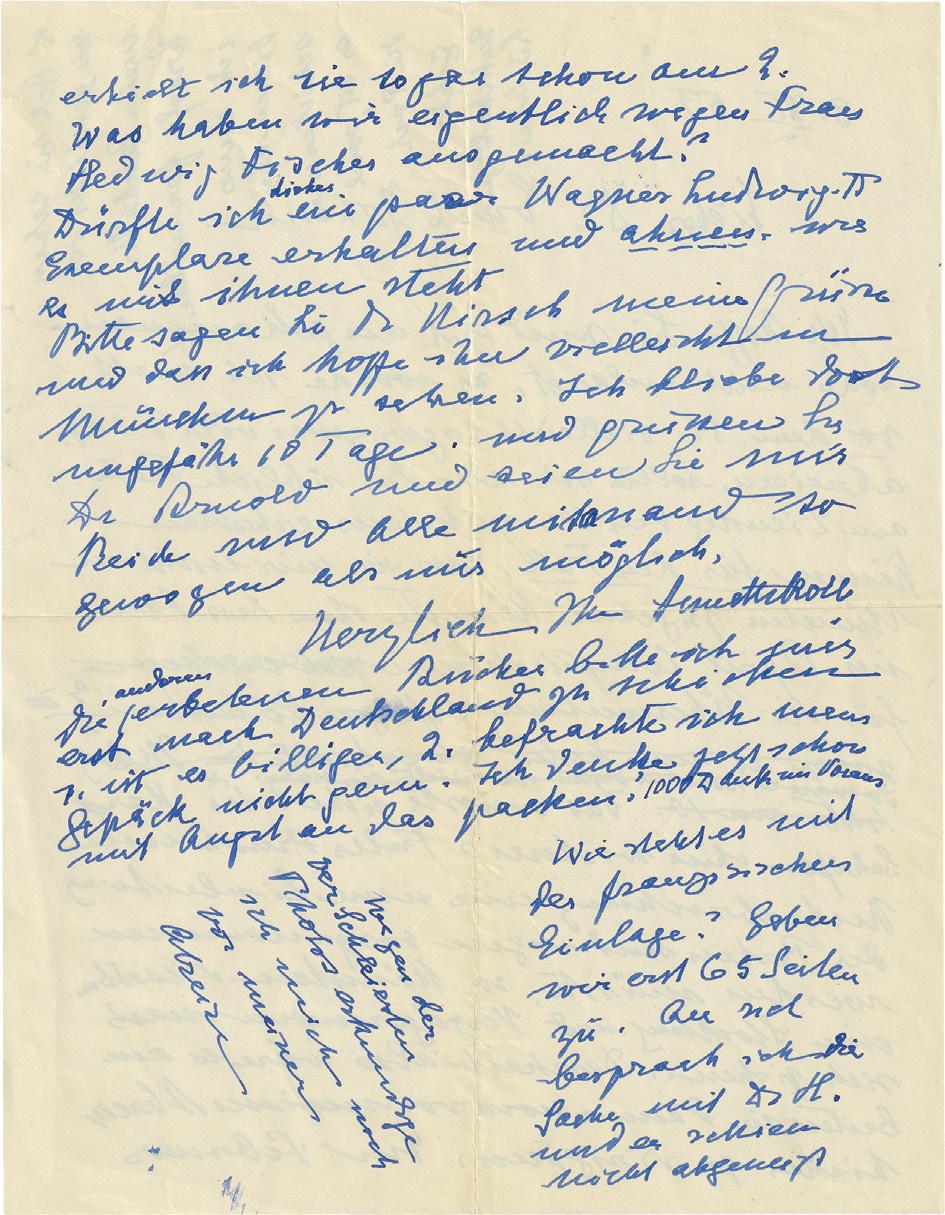 erhielt ich sie sogar schon am 2.
Was haben wir eigentlich wegen Frau
Hedwig Fischer ausgemacht?
Dürfte ich ein paar Wagner Ludwig II
Exemplare erhalten und ahnen. wie
es mit ihnen steht
Bitte sagen Si Dr Hirsch meine Grüsse
und dass ich hoffe ihn vielleicht in
München zu sehen. Ich bliebe dort
ungefähr 10 Tage. und grüssen Sie
Dr Arnold und seien Sie mir
Beide und Alle miteinand so
gewogen als nur möglich.
Herzlich Ihre Annette Kolb
anderen
Die erbetenen Bücher bitte ich mir
erst nach Deutschland zu schicken
1. ist es billiger, 2. befrachte ich mein
Gepäck nicht gern. Ich denke jetzt schon
mit Angst an das packen. 1000 Dank im Voraus
Wie steht es mit
der französischen
Einlage? Geben
wir erst 65 Seiten
zu. An sich
besprach ich die
Sache mit Dr H.
und er schien
nicht abgeneigt
wegen der
verschleierten
Photos erkundige
ich mich noch
vor meiner
Abreise